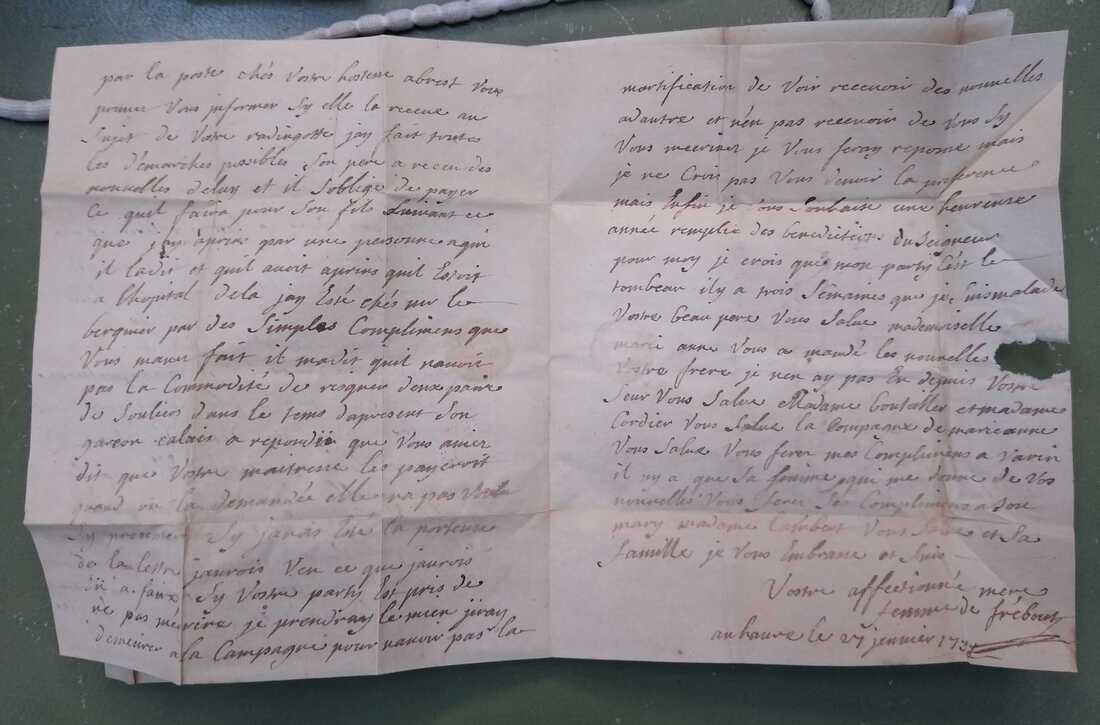 par la poste chés Vostre hostesse abrest vous
pouvez vous informer Sy elle la receue au
Sujet de Vostre radingotte jay fait toutes
les Demarches posibles Son pere a receu des
nouvelles deluy et il Soblige de payer
Ce quil faira pour Son fils Suivant ce
que jay aprins par une personne aqui
il ladit et quil avoit aprins quil Estoit
a lhopital dela jay Esté chés mr le
berquier par des Simples Complimens que
Vous mavez fait il madit quil navoit
pas la Commodité de deux paire
de Souliers dans le tems dapresent Son
garcon calais a repondu que Vous aviez
dit que Vostre maitresse les payeroit
quand on la demandée elle na pas Voulu
Sy javais Esté la porteuse
de la lettre jaurois Veu ce que jaurois
a faire Sy Vostre party Est pris de
ne pas mécrire je prendray le mien jiray
demeurer ala Campagne pour navoir pas la
mortification de Voir recevoir des nouvelles
adautre et nén pas recevoir de Vous Sy
Vous mecrivez je Vous feray reponse mais
je ne Crois pas Vous devoir la preference
mais Enfin je Vous Souhaite une heureuse
année remplie des benedictions du Seigneur
pour moy je crois que mon party Est le
tombeau il y a trois Semaines que je Suis malade
Vostre beau pere Vous Salue mademoiselle
marie anne Vous a mandé les nouvelles
Vostre frere je nen ay pas Eu depuis Vostre
Seur Vous Salue Madame bouteiller et madame
Cordier Vous Salue la Compagne de marieanne
Vous Salue Vous ferez mes Complimens a Varin
il ny a que Sa femme qui me donne de Vos
nouvelles Vous ferez Ses Complimens a Son
mary madame Lambert Vous Salue et Sa
famille je Vous Embrasse et Suis
Vostre affectionnée mere
femme de frébourg
au havre le 27 jenvier